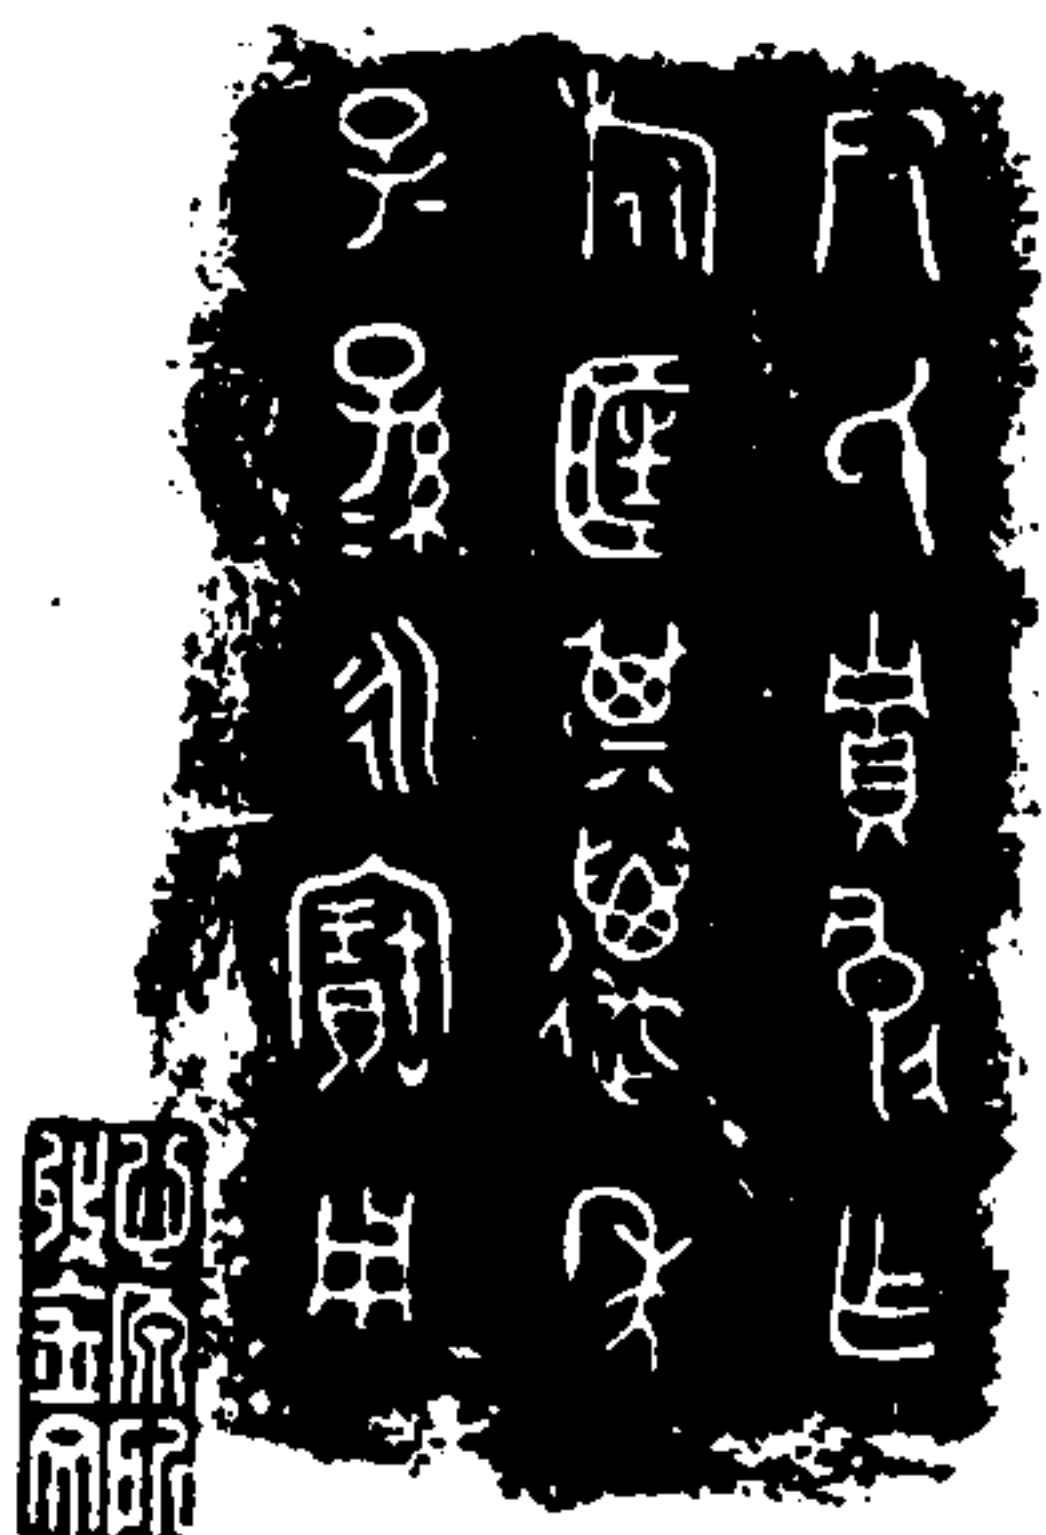 尹氏貯良乍
旅匡其萬年
子=孫=永寶用